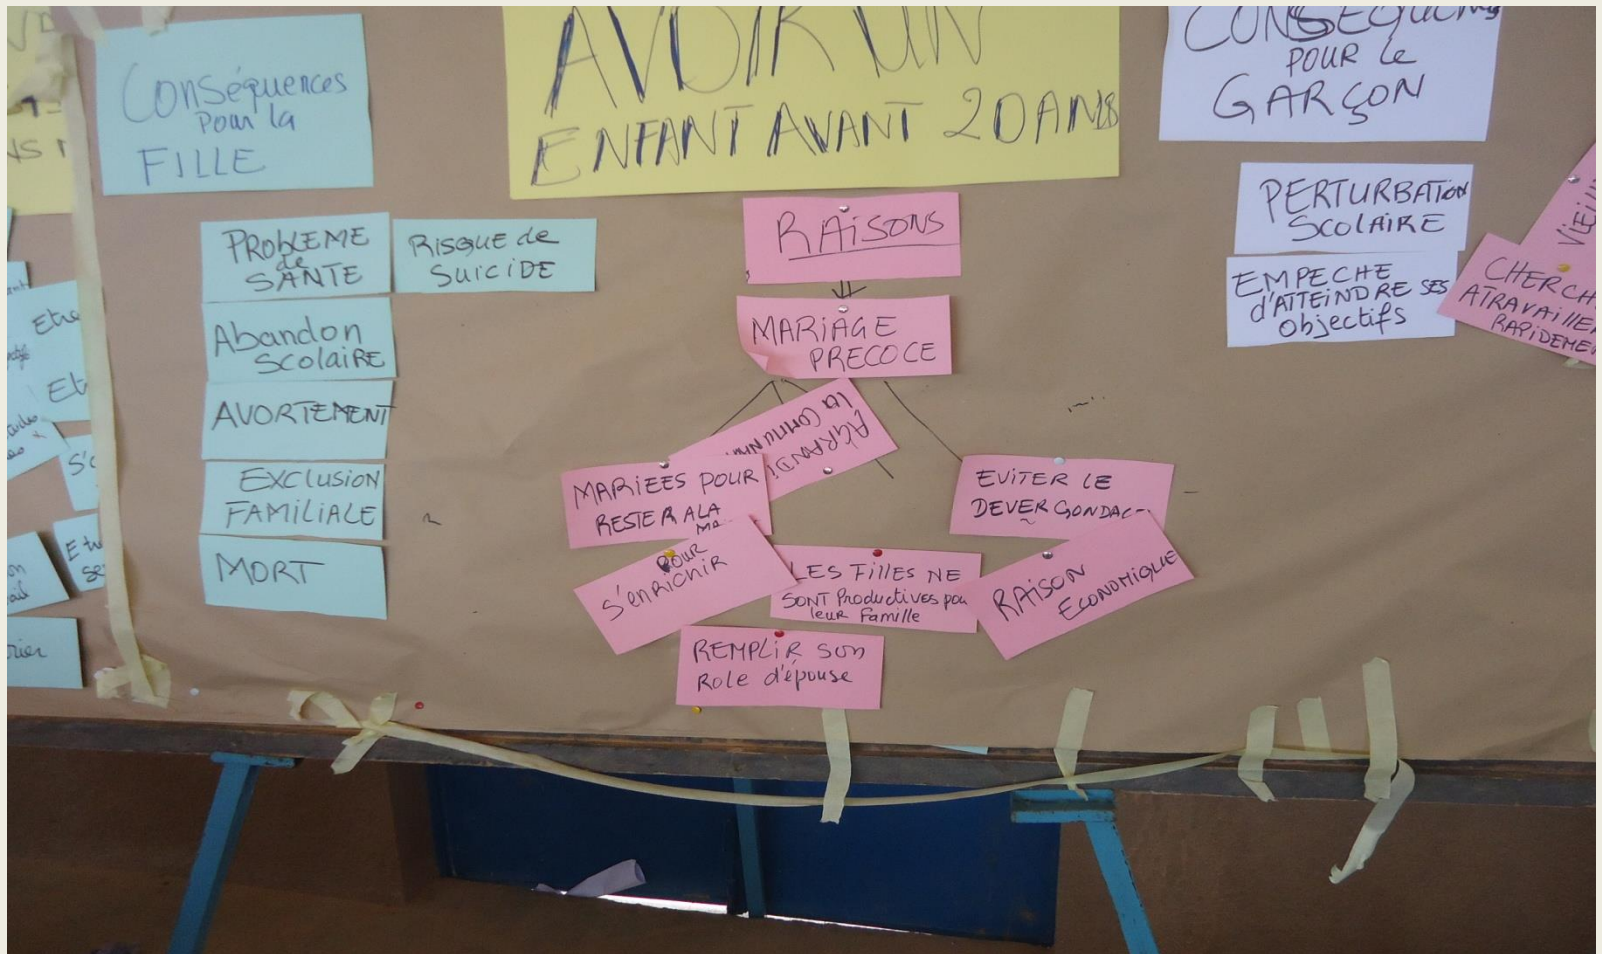 Conséquences
pour la
FILLE
AVOIR UN
ENFANT AVANT 20 ANS
POUR le
GARÇON
PROBLEME
de
SANTE
RISQUE de
SUICIDE
Abandon
SCOLAIRE
AVORTEMENT
EXCLUSION
FAMILIALE
MORT
RAISONS
MARIAGE
PRECOCE
AGRANDI
la COMMUN
MARIEES POUR
RESTER A LA
MA
POUR
S'enRICHIR
LES FILLES NE
SONT Productives pou
leur Famille
REMPLIR son
Role d'épouse
EVITER LE
DEVERGONDAG
RAISON
ECONOMIQUE
PERTURBATION
SCOLAIRE
EMPECHE
d'ATTEINDRE SES
Objectifs
CHERCH
A TRAVAILLE
RAPIDEME
VIEILL
Etre
Et
S'
Etre
se